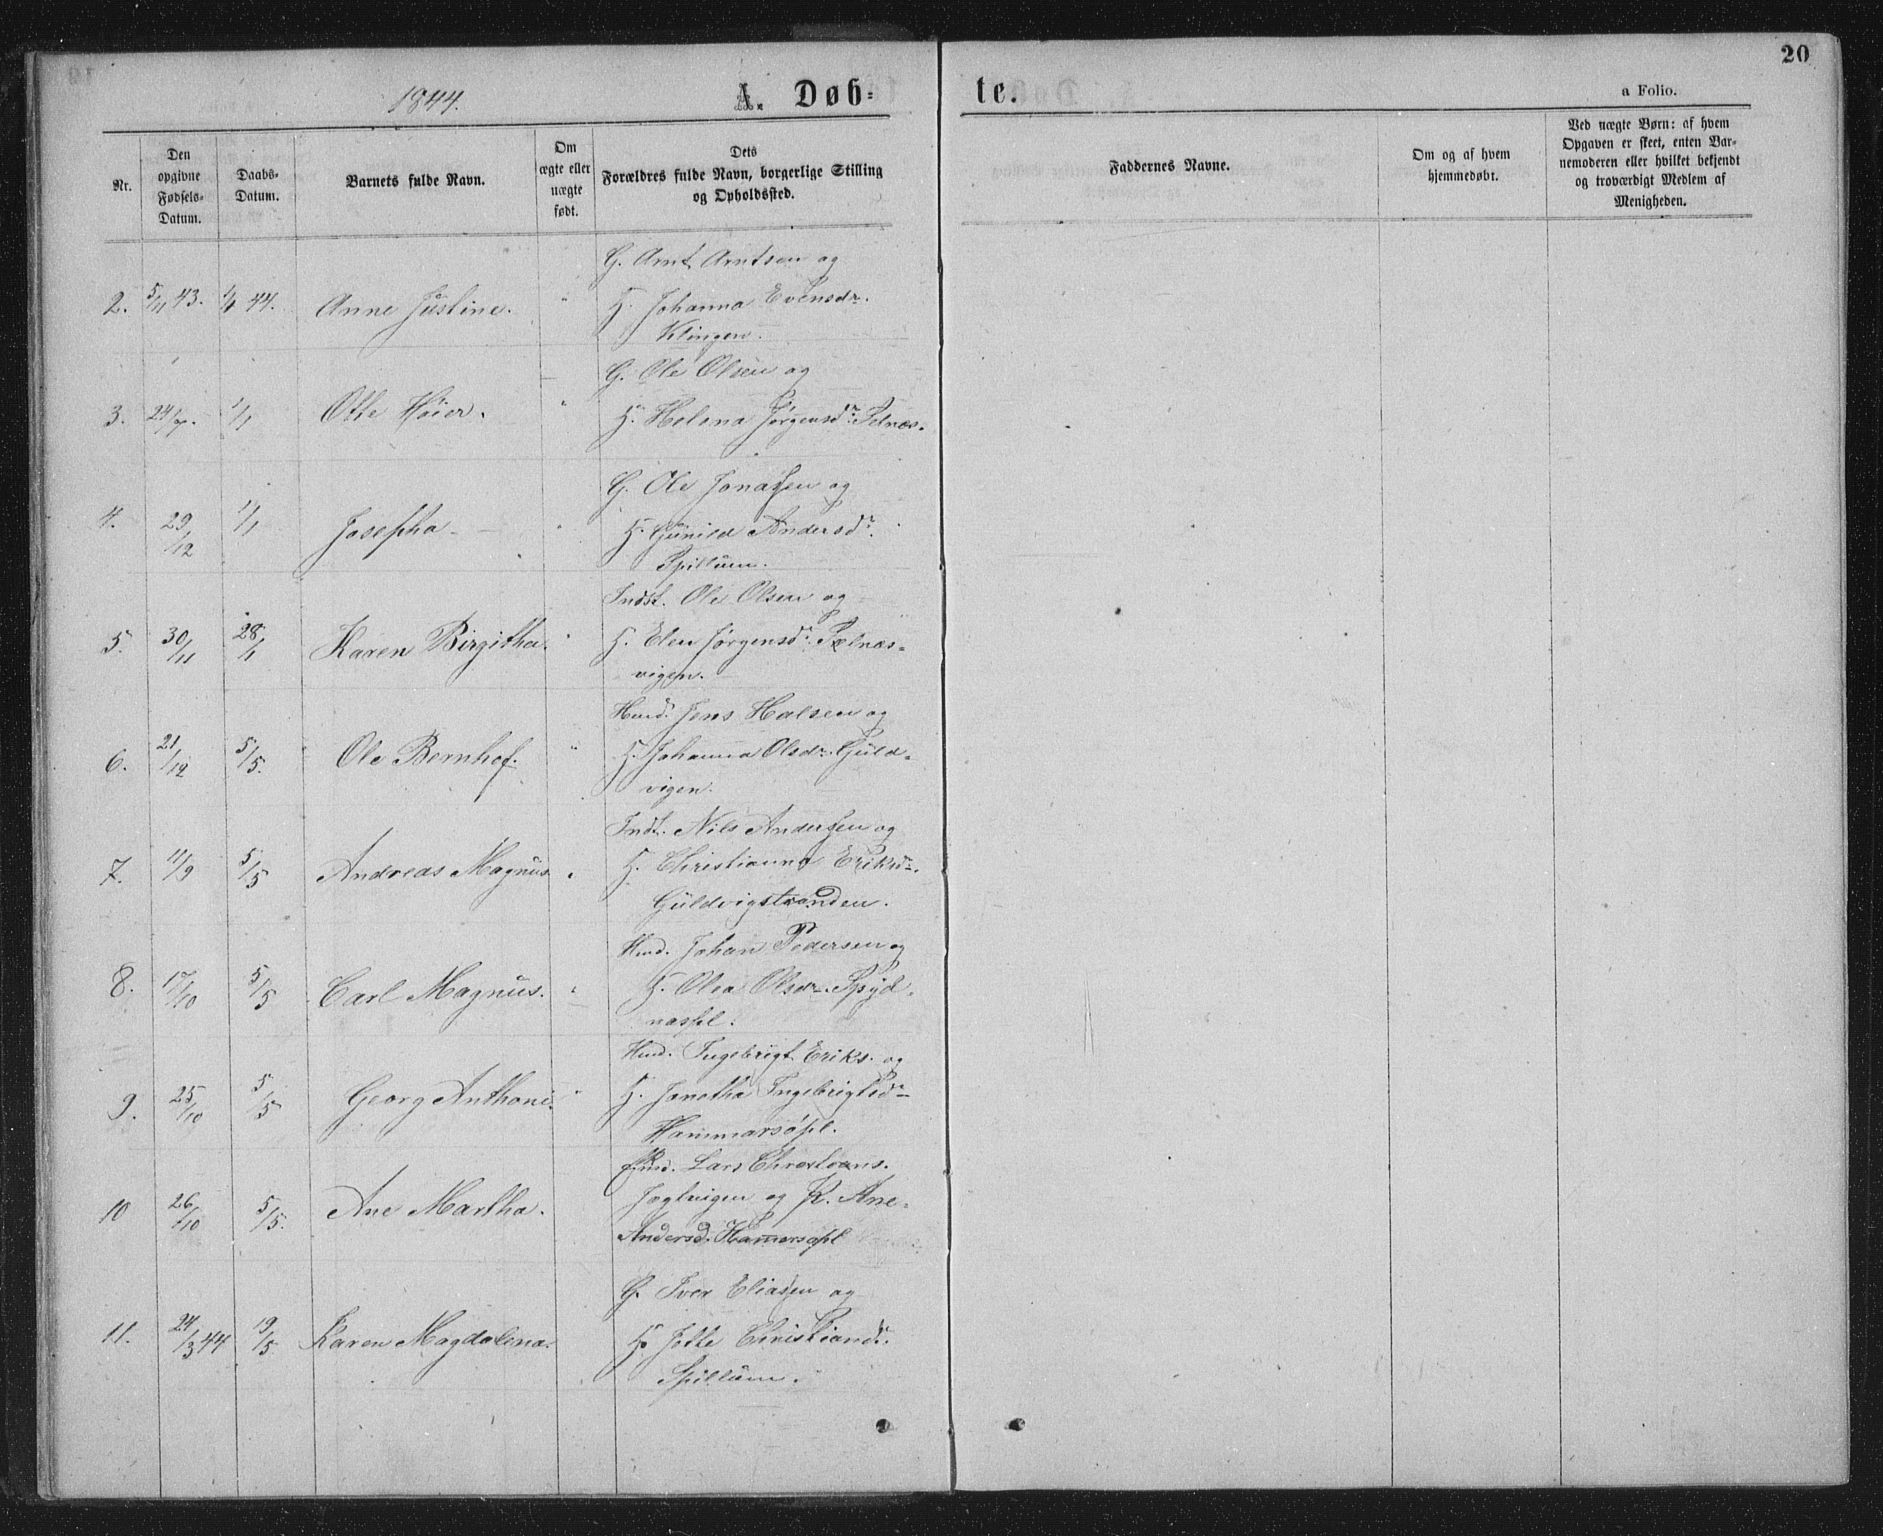 20
1844.
A. Døbte.
a Folio.
Nr.
Den opgivne Fødsels-Datum.
Daabs-Datum.
Barnets fulde Navn.
Om ægte eller uægte født.
Dets Forældres fulde Navn, borgerlige Stilling og Opholdssted.
Faddernes Navne.
Om og af hvem hjemmedøbt.
Ved uægte Børn: af hvem Opgaven er skeet, enten Barnemoderen eller hvilket bekjendt og troværdigt Medlem af Menigheden.
G. Arnt Arntsen og
2. 5/11 43. 1/1 44. Anne Justine. " H. Johanna Evensdr.
Klingen.
G. Ole Olsen og
3. 24/7. 1/1 Otte Høier. " H. Helena Jørgensdr. Pelnæs.
G. Ole Jonassen og
4. 29/12 1/1 Josepha " H. Gunild Andersdr.
Spillum.
Indst. Ole Olsen og
5. 30/11 28/1 Karen Birgitha. " H. Elen Jørgensdr. Pælnæs-
vigen.
Huusm. Jens Halsen og
6. 21/12 5/5. Ole Bernhof. " H. Johanna Olsdr. Guld-
vigen.
Indst. Nils Anderssen og
7. 11/9 5/5 Andreas Magnus " H. Christianna Eriksdr.
Guldvigstranden.
Hmd. Johan Pedersen og
8. 17/10 5/5 Carl Magnus. " H. Olea Olsdr. Spyd-
næspl.
Hmd. Ingebrigt Eriks. og
9. 25/10 5/5 Georg Anthoni. " H. Janetha Ingebrigtsdr
Hammarsøpl.
Lars Christians.
10 26/10 5/5. Ane Martha. Jegtvigen og K. Ane
Andersd. Hamersøpl
G. Iver Eliassen og
11. 24/3 44 19/5 Karen Magdalena. H. Jette Christiandr.
Spillum.